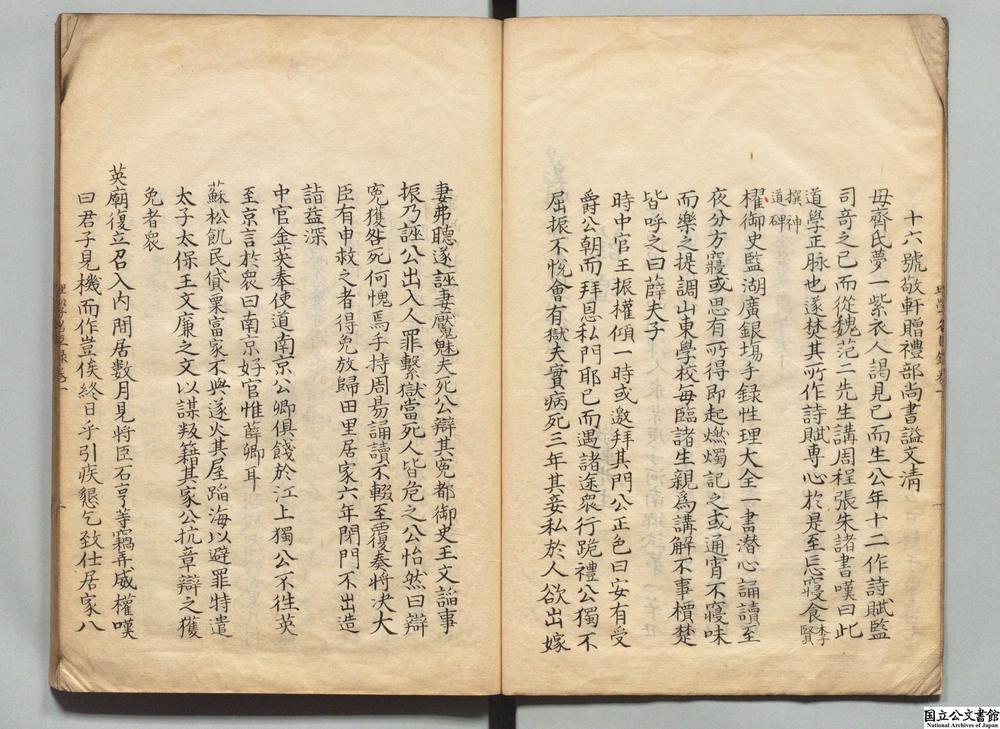 十六號敬軒贈禮部尚書謚文清
母齊氏夢一紫衣人謁見已而生公年十二作詩賦監
司奇之已而從魏范二先生講周程張朱諸書嘆曰此
道學正脉也遂焚其所作詩賦專心於是至忘寢食李賢
撰神道碑
櫂御史監湖廣銀塲手録性理大全一書潜心誦讀至
夜分方寢或思有所得即起燃燭記之或通宵不寢味
而樂之提調山東學校每臨諸生親爲講解不事檟楚
皆呼之曰薛夫子
時中官王振權傾一時或邀拜其門公正色曰安有受
爵公朝而拜恩私門耶已而遇諸途衆行跪禮公獨不
屈振不悅會有獄夫實病死三年其妾私於人欲出嫁
妻弗聽遂誣妻魘魅夫死公辯其冤都御史王文謟事
振乃誣公出入人罪繫獄當死人皆危之公怡然曰辯
冤獲咎死何愧焉手持周易誦讀不輟至覆奏將决大
臣有申救之者得免放歸田里居家六年閉門不出造
詣益深
中官金英奉使道南京公卿俱餞於江上獨公不徃英
至京言於衆曰南京好官惟薛卿耳
蘇松飢民貸粟富家不與遂火其屋蹈海以避罪特遣
太子太保王文廉之文以謀叛籍其家公抗章辯之獲
免者衆
英廟復立召入内閣居数月見將臣石亨等竊弄威權嘆
曰君子見機而作豈俟終日乎引疾懇乞致仕居家八
国立公文書館
National Archives of Japan